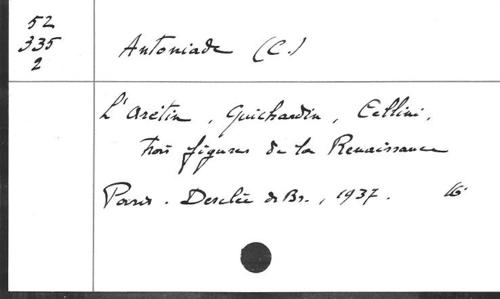 52
335
2
Antoniade (C.)
L'Arétin, Guichardin, Cellini,
Trois figures de la Renaissance
Paris. Desclée de Br., 1937. 16°